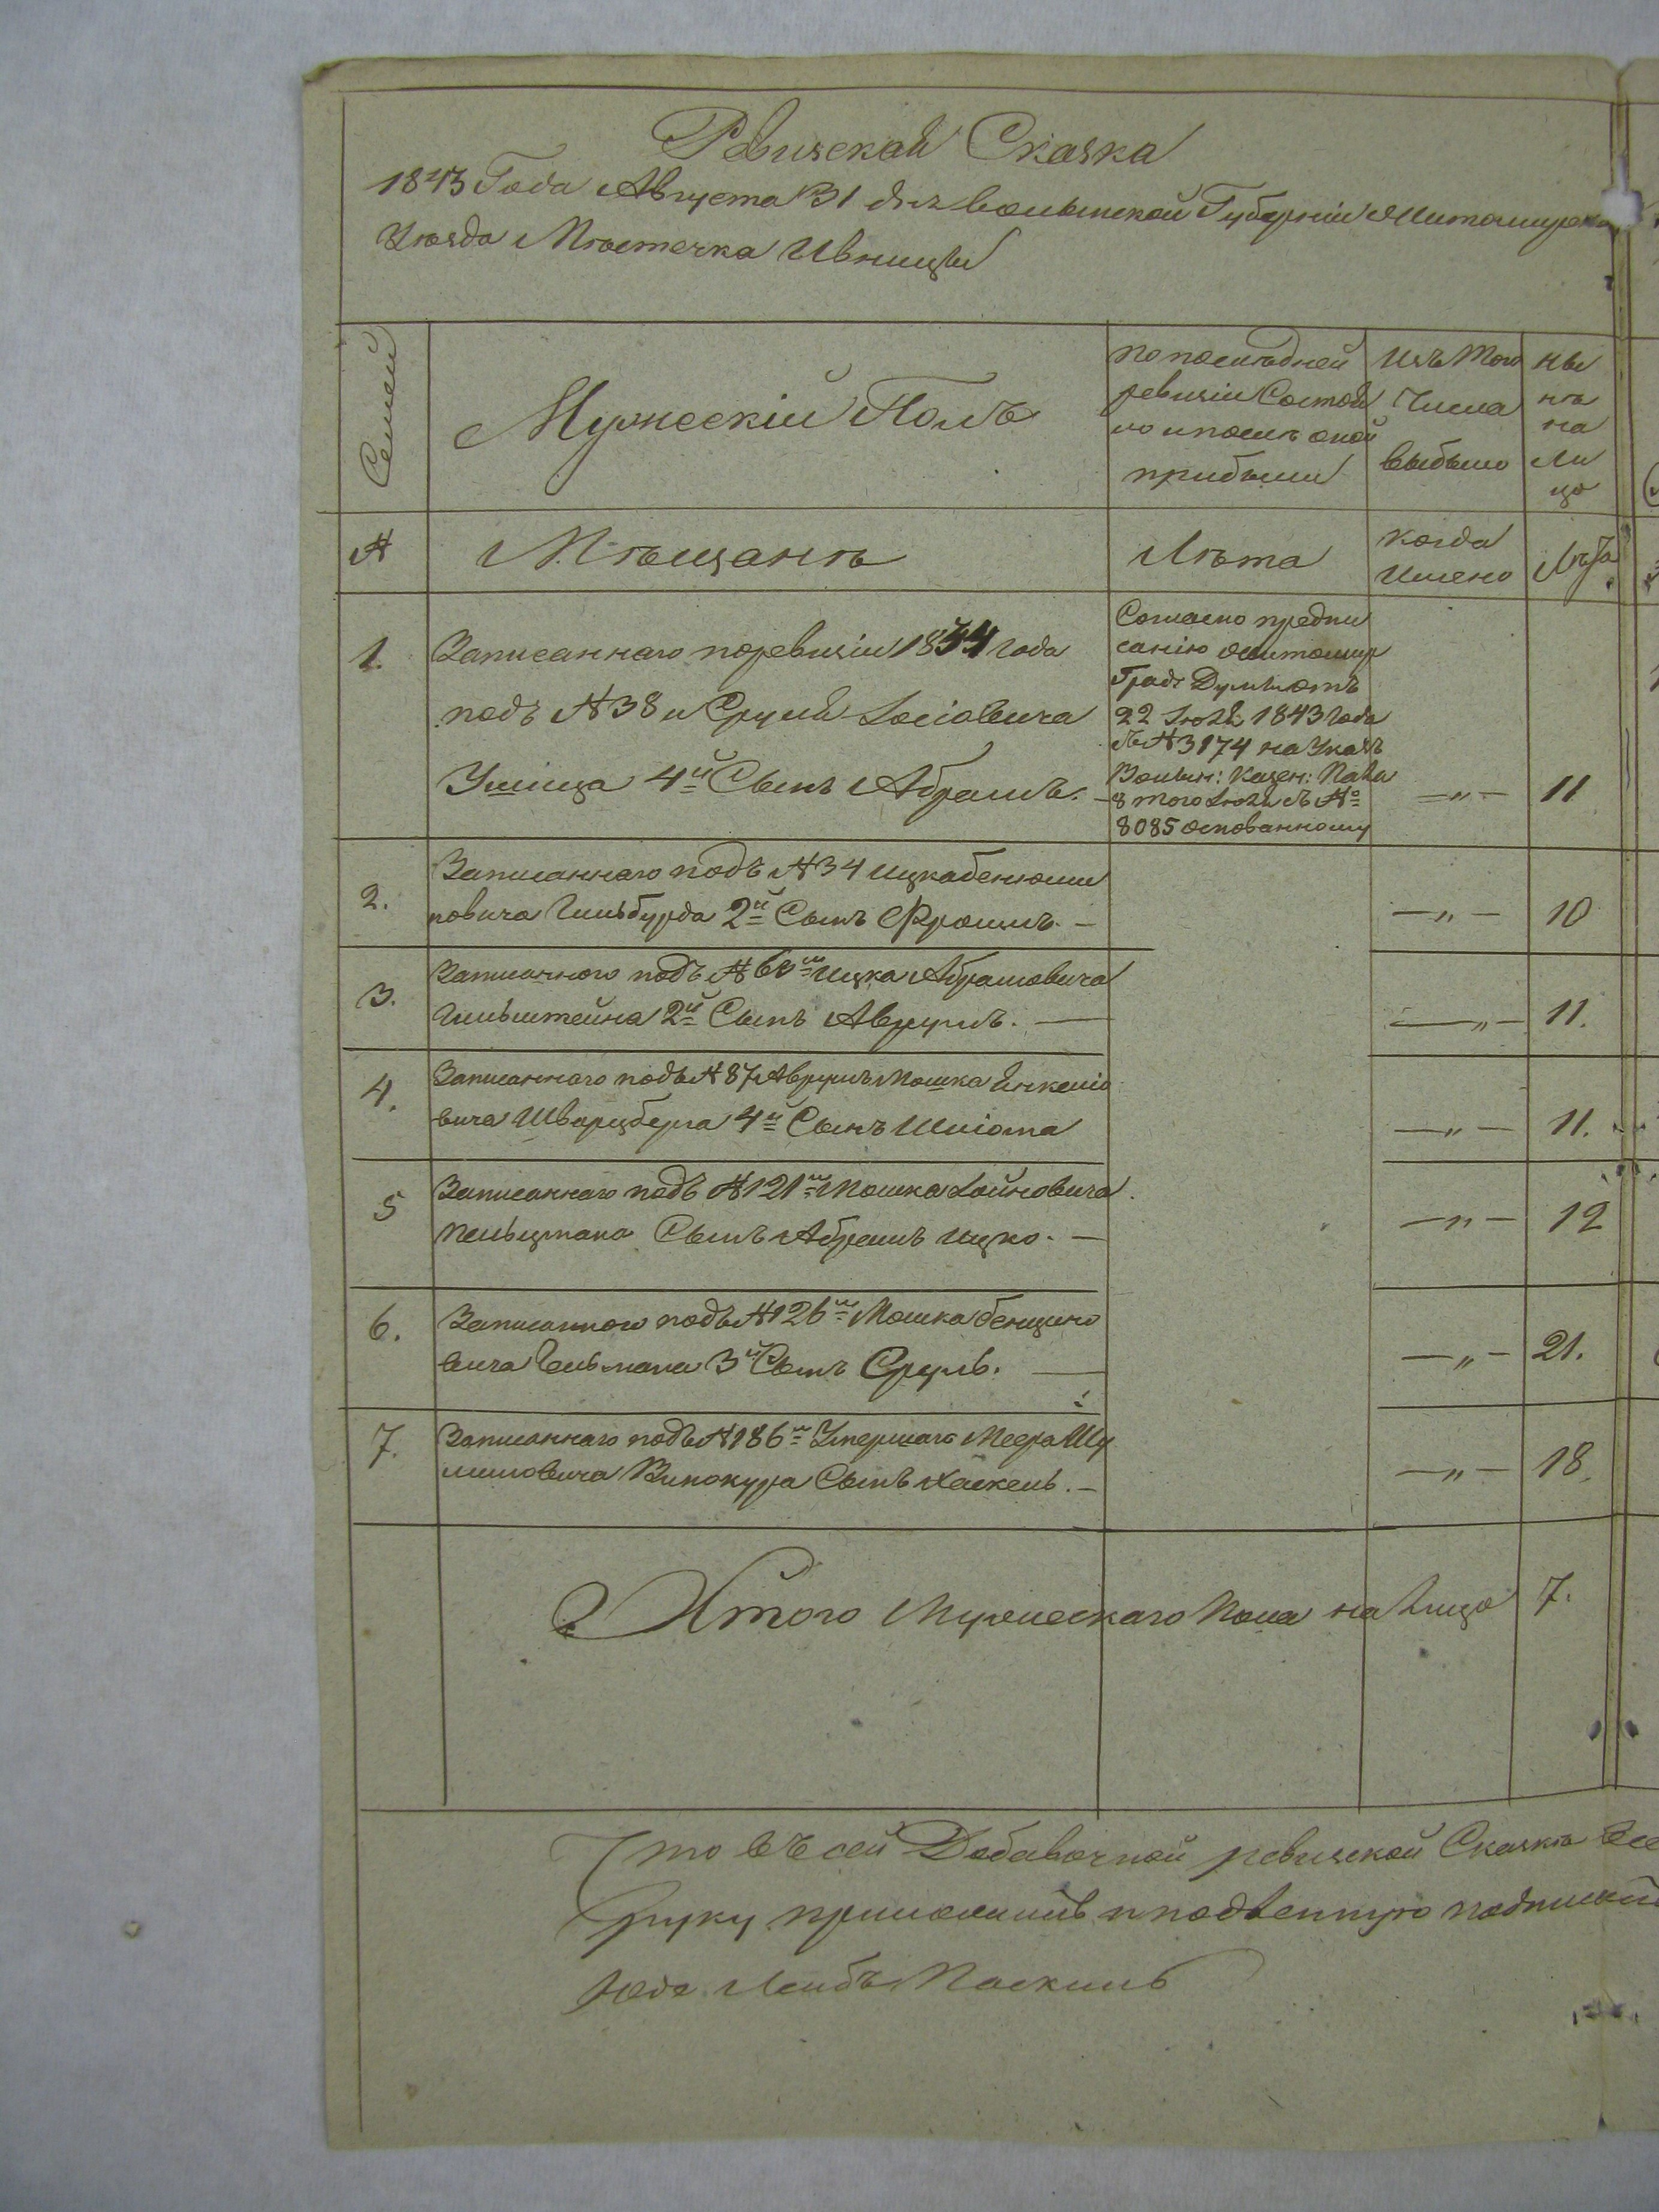 Ревизская Сказка
1843 Года Августа 31 дня Волынской Губернiи Житомирска
Уѣзда Мѣстечка Ивницы
Семей
Мужескiй Полъ
по последней
ревизiи Состоя
ло и послѣ оной
прибыли
Изъ Того
Числа
выбыло
Ны
нѣ
на
Ли
цо
№
Мѣщанѣ
Лѣта
когда
Имено
Лѣта
1.
Записаннаго поревизiи 1834 года
подъ №38 м Сруля Iосiовича
4й Сынъ Абрамъ.
Согласно предпи
санiю Житомир
Град: Думы отъ
22 Iюля 1843 года
съ №3174 на Указѣ
Волын: Казен: Пала
8 того Iюля съ №
8085 основанному
—„—
11
2.
Записаннаго подъ №34 Ицка Бенюми
новича Гильбурда 2й Сынъ Фроимъ. —
—„—
10
3.
Записанного подъ №60м Ицка Абрамовича
Гильштейна 2й Сынъ Аврумъ. —
—„—
11.
4.
Записаннаго подъ №87 Аврумъ Мошка Янкелiо
вича Шварцберга 4й Сынъ Шлiома
—„—
11.
5
Записаннаго подъ №121м Мошка Лойновича
Пельцмана Сынъ Абрамъ Ицко. —
—„—
12
6.
Записанного подъ №126м Мошка Бенцiно
вича Гельмана 3й Сынъ Сруль. —
—„—
21.
7.
Записаннаго подъ №186м Умершаго Меера Шу
лимовича Винокура Сынъ Хаскель. —
—„—
18.
Итого Мужескаго Пола на Лицо
7.
Что въ сей Добавочной ревизской Сказкѣ Все
руку приложилъ подпискiй
Юда Лейбъ Паскиль